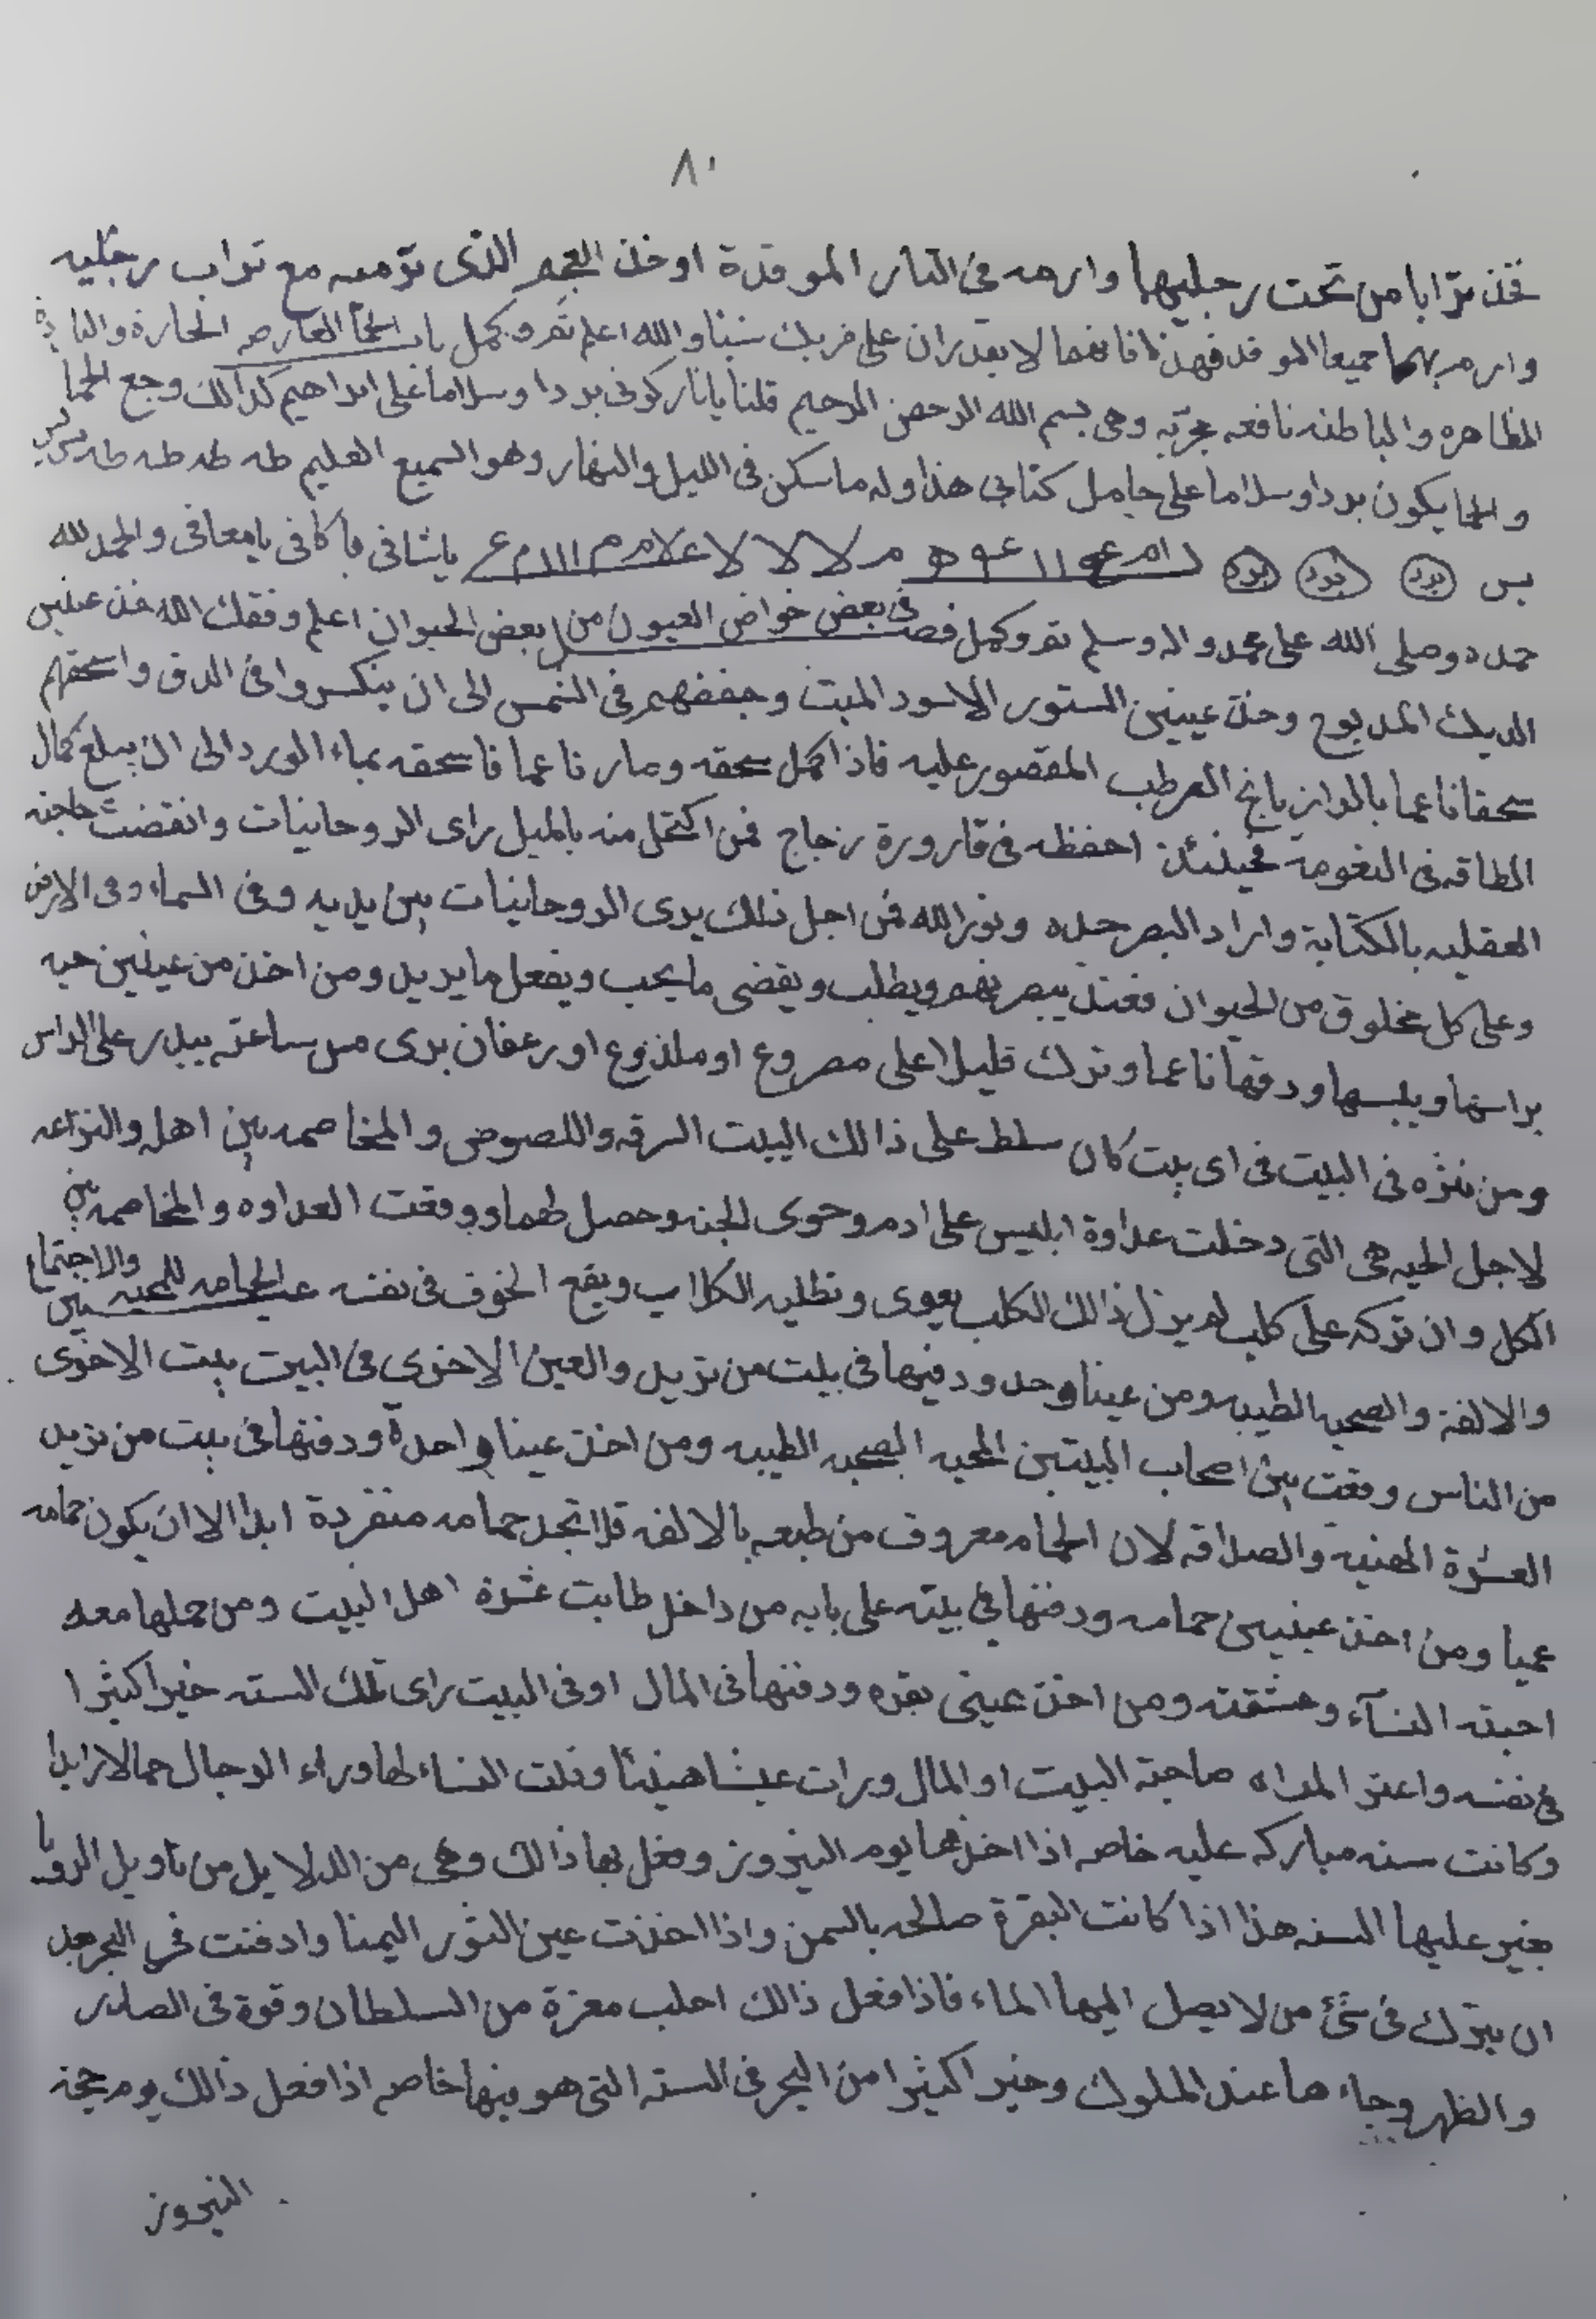 ٨٠
فخذ ترابا من تحت رجليها وارمه فى النار الموقدة او خذ الذى ترميه مع تراب رجليه
وارم بهما جميعا الموقد فهذا فانهما لا يقدران على ضربك شيئا والله اعلم تم وكمل باب الحما العارضه الحارة والباردة
الظاهره والباطنه نافعه مجربه وهى بسم الله الرحمن الرحيم قلنا يا نار كونى بردا وسلاما على ابراهيم كذالك وجع الحما
والحما يكون بردا وسلاما على حامل كتابى هذا وله ما سكن فى الليل والنهار وهو السميع العليم طه طه طه طه
يس برد برد برد يا شافى يا كافى يا معافى والحمد لله
حمده وصلى الله على محمد واله وسلم تم وكمل فصل فى بعض خواص العيون من بعض الحيوان اعلم وفقك الله خذ عينين
الديك المذبوح وخذ عينين السنور الاسود الميت وجففهم فى الشمس الى ان ينكسروا فى الدق واسحقهم
سحقا ناعما بالرازيانج الرطب المقصور عليه فاذا كمل سحقه وصار ناعما فاسحقه بماء الورد الى ان يبلغ كمال
الطاقه فى النعومة فحينئذ احفظه فى قارورة زجاج فمن اكتحل منه بالميل راى الروحانيات وانقضت حاجته
العقليه بالكتابة واراد البصر حده ونور الله فمن اجل ذلك يرى الروحانيات بين يديه وفى السماء وفى الارض
وعلى كل مخلوق من الحيوان يبصر بهم ويطلب ويقضى ما يحب ويفعل ما يريد ومن اخذ من عينين حيه
براسها ويبسها ودقها ناعما وترك قليلا على مصروع او ملذوع او رعفان برى من ساعته على الراس
ومن نثره فى البيت فى اى بيت كان سلط على ذالك البيت السرقه واللصوص والمخاصمه بين اهله والنزاعه
لاجل الحيه هى التى دخلت عداوة ابليس على ادم وحوى الجنه وحصل لهما ووقعت العداوه والمخاصمه بين
الكل وان تركه على كلب لم يزل ذالك الكلب يعوى وتطلبه الكلاب ويقع الخوف فى نفسه عين الحمامه للمحبه والاجتماع بين
والالفة والصحبه الطيبه ومن عينا وحد ودفنها فى بيت من تريد والعين الاخرى فى البيت بيت الاخرى
من الناس وقعت بين اصحاب البيتين المحبه الصحبه الطيبه ومن اخذ عينا واحدة ودفنها فى بيت من تريد
العشرة الهنيه والصداقه لان الحمام معروف من طبعه بالالفه فلا تجد حمامه منفردة ابدا الا ان يكون حمامه
عميا ومن اخذ عينين حمامه ودفنها فى بيته على بابه من داخل طابت عشرة اهل البيت ومن حملها معه
احبته النسآء وعشقته ومن اخذ عينى بقره ودفنها فى المال او فى البيت راى تلك السنه خيرا كثيرا
فى نفسه المراه صاحبة البيت او المال ورات عيشا هنيئا وقلت النساء لها وراء الرجال جمالا زايدا
وكانت سنه مباركه عليه خاصه اذا اخذهما يوم النيروز وفعل بها ذالك وهى من الدلايل من تاويل الرويا
بخير عليها السنه هذا اذا كانت البقرة صالحه بالسمن واذا اخذت عين الثور اليمنا وادفنت فى البحر بعد
ان يترك فى شئ من لا يصل اليها الماء فاذا فعل ذالك احلب معزة من السلطان وقوة فى الصدر
والظهر وجاء ها عند الملوك وخير اكثيرا من البحر فى السنه التى هو فيها خاصه اذا فعل ذالك يوم
النيروز